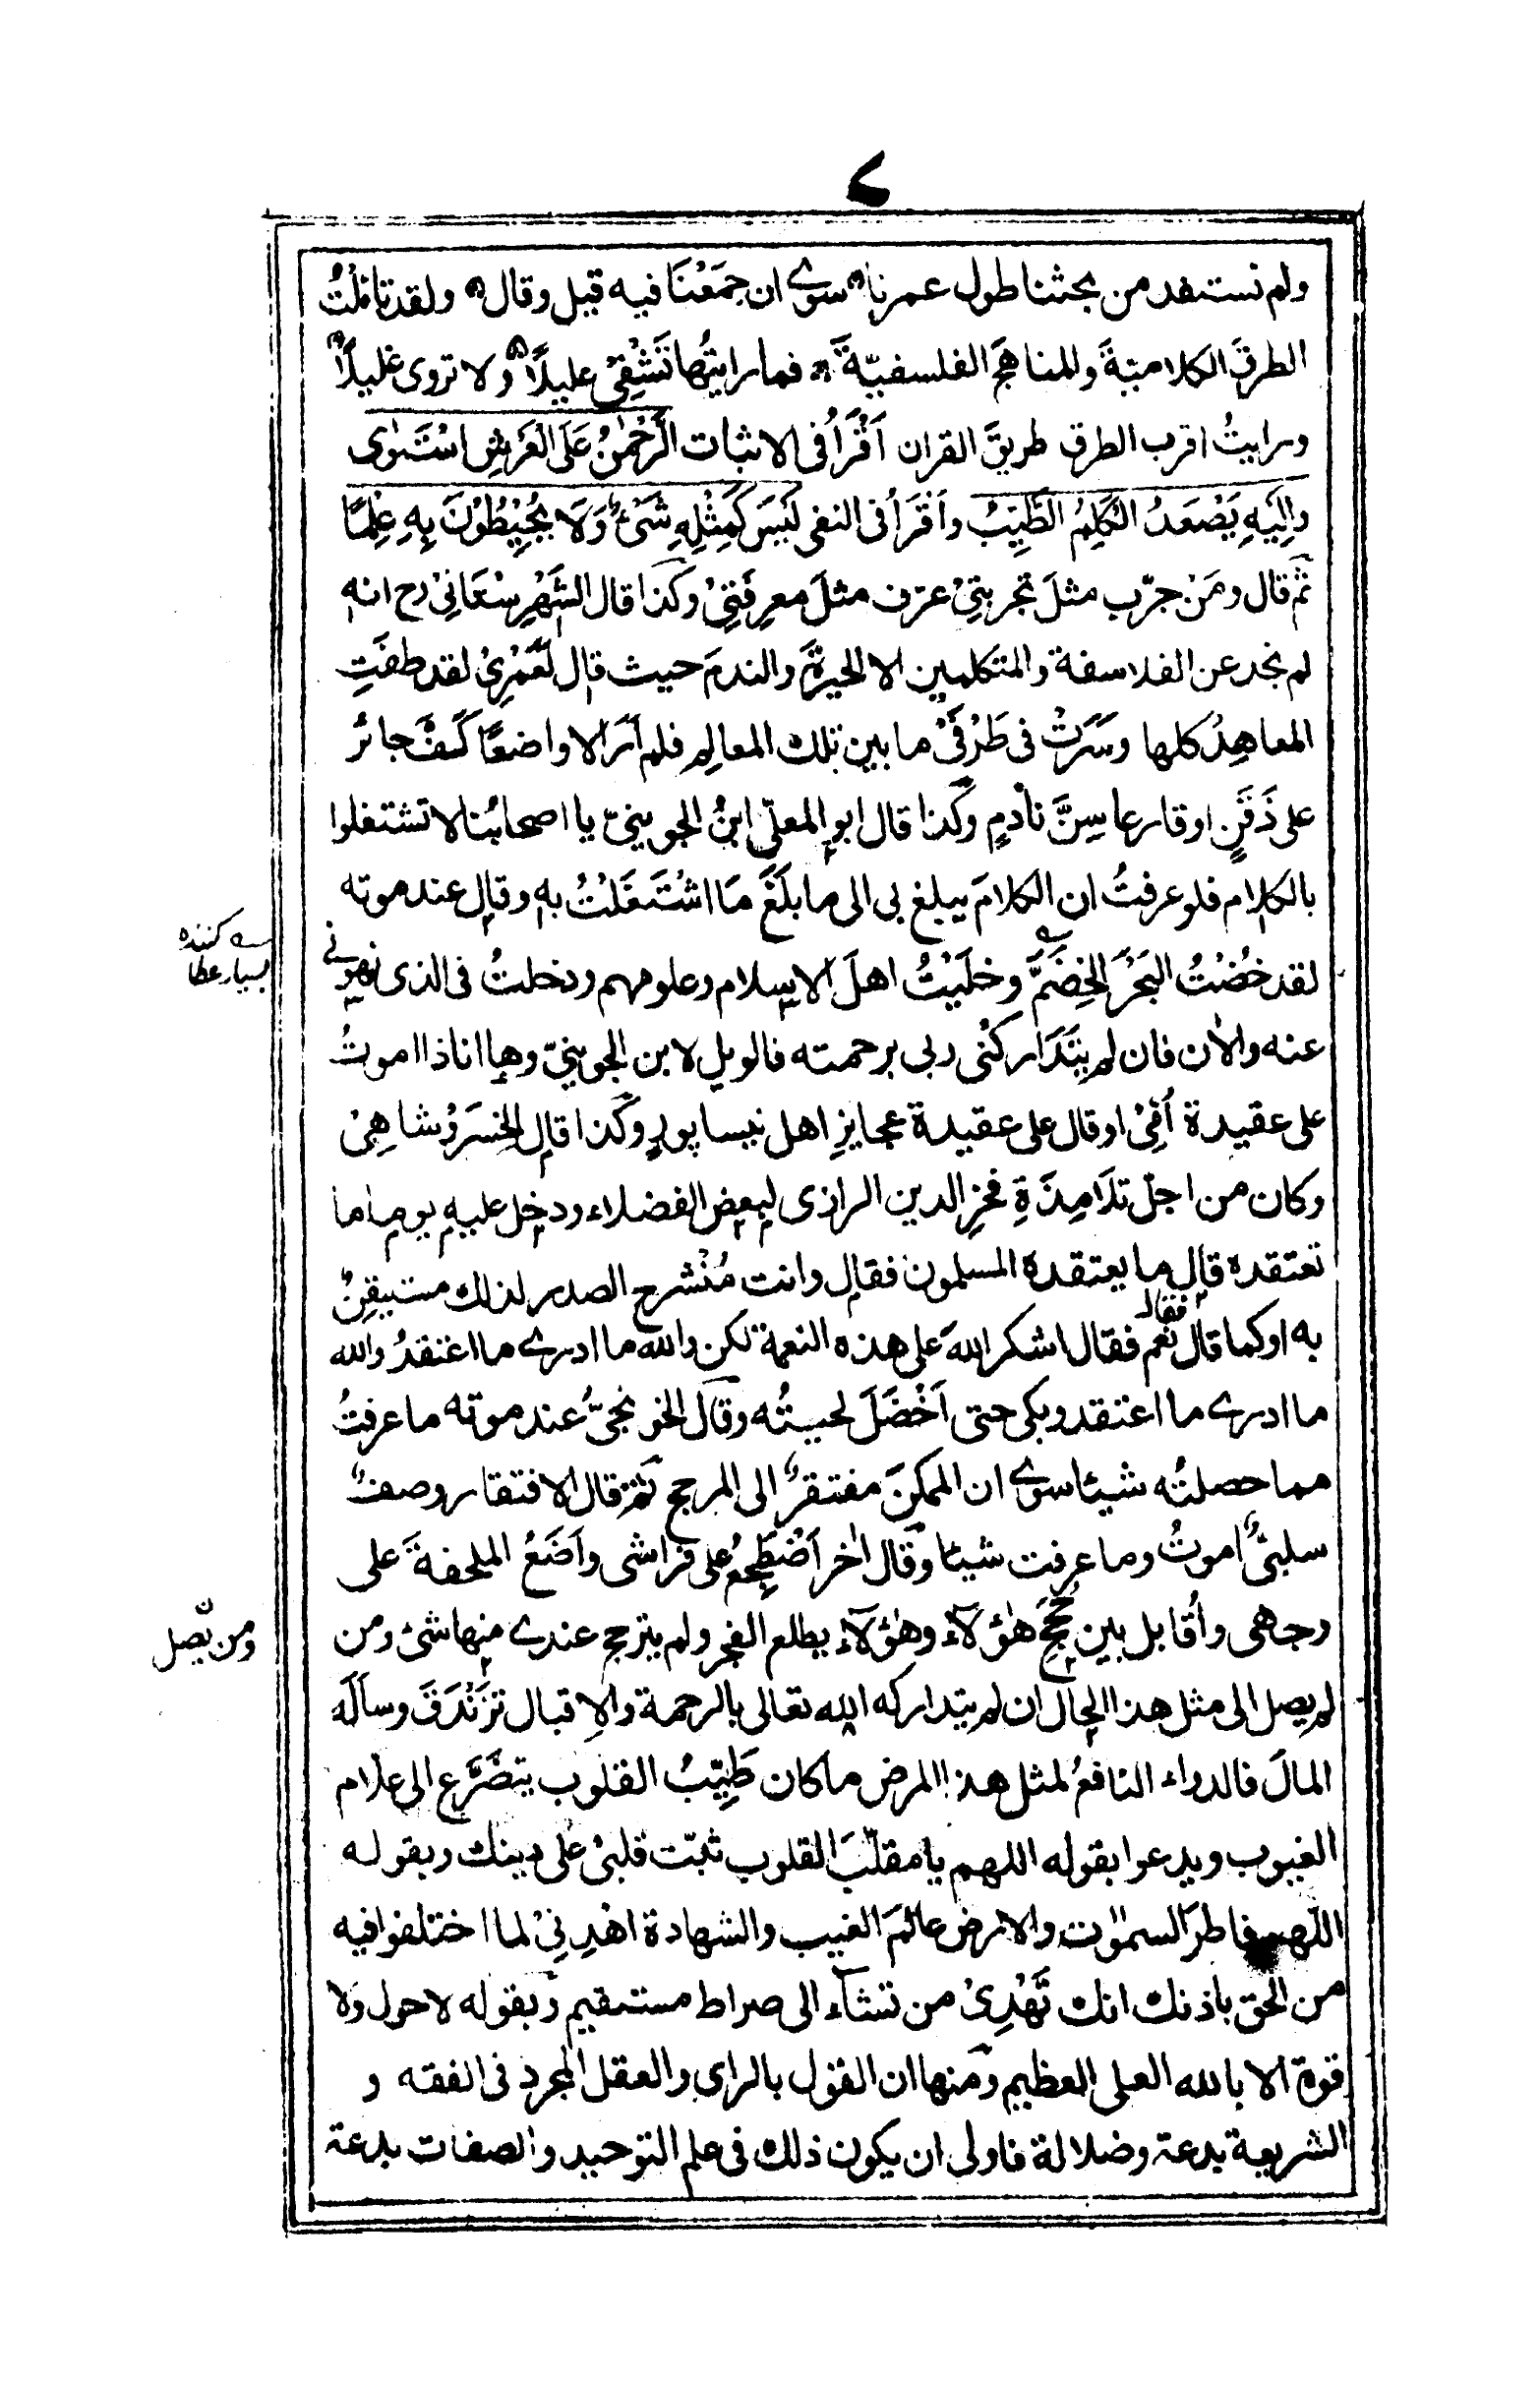 ۷
ولم نستفد من بحثنا طول عمرنا سوے ان جَمَعْنَا فيه قيل وقال ولقد تاملتُ
الطرقَ الكلاميّةَ والمناهجَ الفلسفيّةَ فما رايتُها تَشْفِيْ عليلًا ولا تروى غليلًا
ورايتُ اقرب الطرق طريقَ القران اَقْرَأُ فى الاثبات اَلرَّحْمٰنُ عَلَى الْعَرْشِ اسْتَوٰى
واِلَيْهِ يَصْعَدُ الْكَلِمُ الطَّيِّبُ واَقْرَأُ فى النفى لَيْسَ كَمِثْلِهٖ شَىْءٌ وَلَا يُحِيْطُوْنَ بِهٖ عِلْمًا
ثم قال ومَنْ جرّب مثلَ تجربتِىْ عرَف مثلَ معرِفَتِىْ وكذا قال الشَّهْرِسْتَانِىْ رح انه
لم نجد عن الفلاسفة والمتكلمين الا الحيرةَ والندمَ حيث قال لَعَمْرِىْ لقد طفتِ
المعاهِدُ كلها وسَرَتْ فى طَرْفَىْ ما بين تلك المعالِم فلم اَرَ الا واضعًا كَفَّ حائر
على ذَقَنٍ اوقارعا سِنَّ نادمٍ وكذا قال ابو المعلى ابنُ الجوينىّ يا اصحابُنا لا تشتغلوا
بالكلام فلو عرفتُ ان الكلامَ يبلغ بى الى ما بَلَغَ مَا اشْتَغَلْتُ به وقال عند موته
لقد خُضْتُ البَحْرَ الخِضَمَّ وخلَيْتُ اهلَ الاسلام وعلومهم ودخلتُ فى الذى نهونى
عنه والاٰن فان لم يَتَدَارَكْنى ربى برحمته فالويل لابن الجوينىّ وها انا ذا اموتُ
على عقيدة اُمِّىْ او قال على عقيدة عجايزِ اهل نيسابور وكذا قال الخسرَوْشاهِىْ
وكان من اجلّ تلَامِذَةِ فخرِ الدين الرازى لبعض الفضلاء ودخل عليه يوما ما
تعتقده قال ما يعتقده المسلمون فقال وانت مُنْشرح الصدر لذلك مستيقِنٌ
به او كما قال فقال نعم فقال اشكر اللهَ على هذه النعمة لكن والله ما ادرے ما اعتقدُ والله
ما ادرے ما اعتقد وبكى حتى اَخْضَلَ لحيتُه وقال الخونجىُّ عند موته ما عرفتُ
مما حصلتُه شيئا سوے ان الممكنَ مفتقرٌ الى المرجح ثم قال الافتقار وصفٌ
سلبىٌّ اموتُ وما عرفت شيئا وقال اٰخر اَضْطَجِعُ على فراشى واَضَعُ الملحفةَ على
وجهى واُقابل بين حُجَجِ هٰؤلاء وهٰؤلاء يطلع الفجر ولم يترجح عندے منها شئ ومن
لم يصل الى مثل هذا الحال ان لم يتداركه الله تعالى بالرحمة والاِقبال تَزَنْدَقَ وساَلَه
المالَ فالدواء النافعُ لمثل هذا المرض ما كان طَبِيْبُ القلوب يتضَرَّع الى علام
الغيوب ويدعوا بقوله اللهم يا مقلّبَ القلوب ثبّت قلبىْ على دينك وبقوله
اللّهم فاطرَ السمٰوٰت والارض عالمَ الغيب والشهادة اهْدِنِىْ لما اختلفوا فيه
من الحق باذنك انك تَهْدِىْ من تشاء الى صراط مستقيم وبقوله لا حول ولا
قوة الا بالله العلى العظيم ومنها ان القول بالراى والعقل المجرد فى الفقه و
الشريعة بدعة وضلالة فاولى ان يكون ذلك فى علم التوحيد والصفات بدعة
كننده
بسيار عطا
ومن يصل